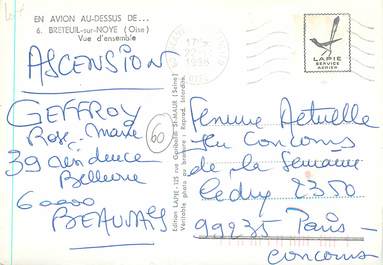 EN AVION AU-DESSUS DE...
6. BRETEUIL-sur-NOYE (Oise)
Vue d'ensemble
ASCENSION
GEFFROY
Rose-Marie
39 résidence
Bellevue
60000
BEAUVAIS
60
Edition LAPIE - 125 rue Garibaldi St-MAUR (Seine)
Véritable photo au bromure - Reprod. Interdite.
LAPIE
SERVICE
AERIEN
Femme Actuelle
Jeu Concours
de la semaine
Cedex 2350
99235 Paris-
concours